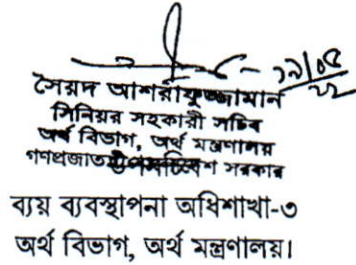 ১৯/০৫
২২
সৈয়দ আশরাফুজ্জামান
সিনিয়র সহকারী সচিব
অর্থ বিভাগ, অর্থ মন্ত্রণালয়
গণপ্রজাতন্ত্রী সরকার
ব্যয় ব্যবস্থাপনা অধিশাখা-৩
অর্থ বিভাগ, অর্থ মন্ত্রণালয়।